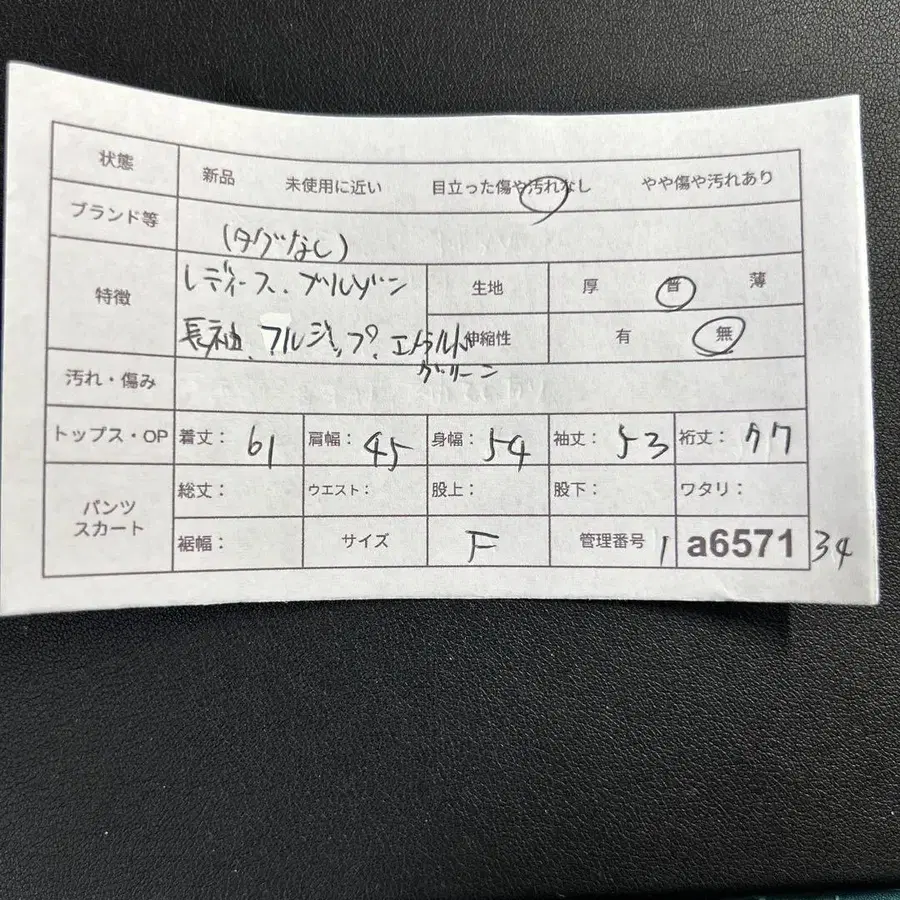 状態 新品 未使用に近い 目立った傷や汚れなし やや傷や汚れあり
ブランド等 (タグなし)
特徴 レディース、ブルゾン 生地 厚 普 薄
長袖、フルジップ、エメラルド 伸縮性 有 無
グリーン
汚れ・傷み
トップス・OP 着丈: 61 肩幅: 45 身幅: 54 袖丈: 53 裄丈: 77
パンツ 総丈: ウエスト: 股上: 股下: ワタリ:
スカート
裾幅: サイズ F 管理番号 1 a6571 34